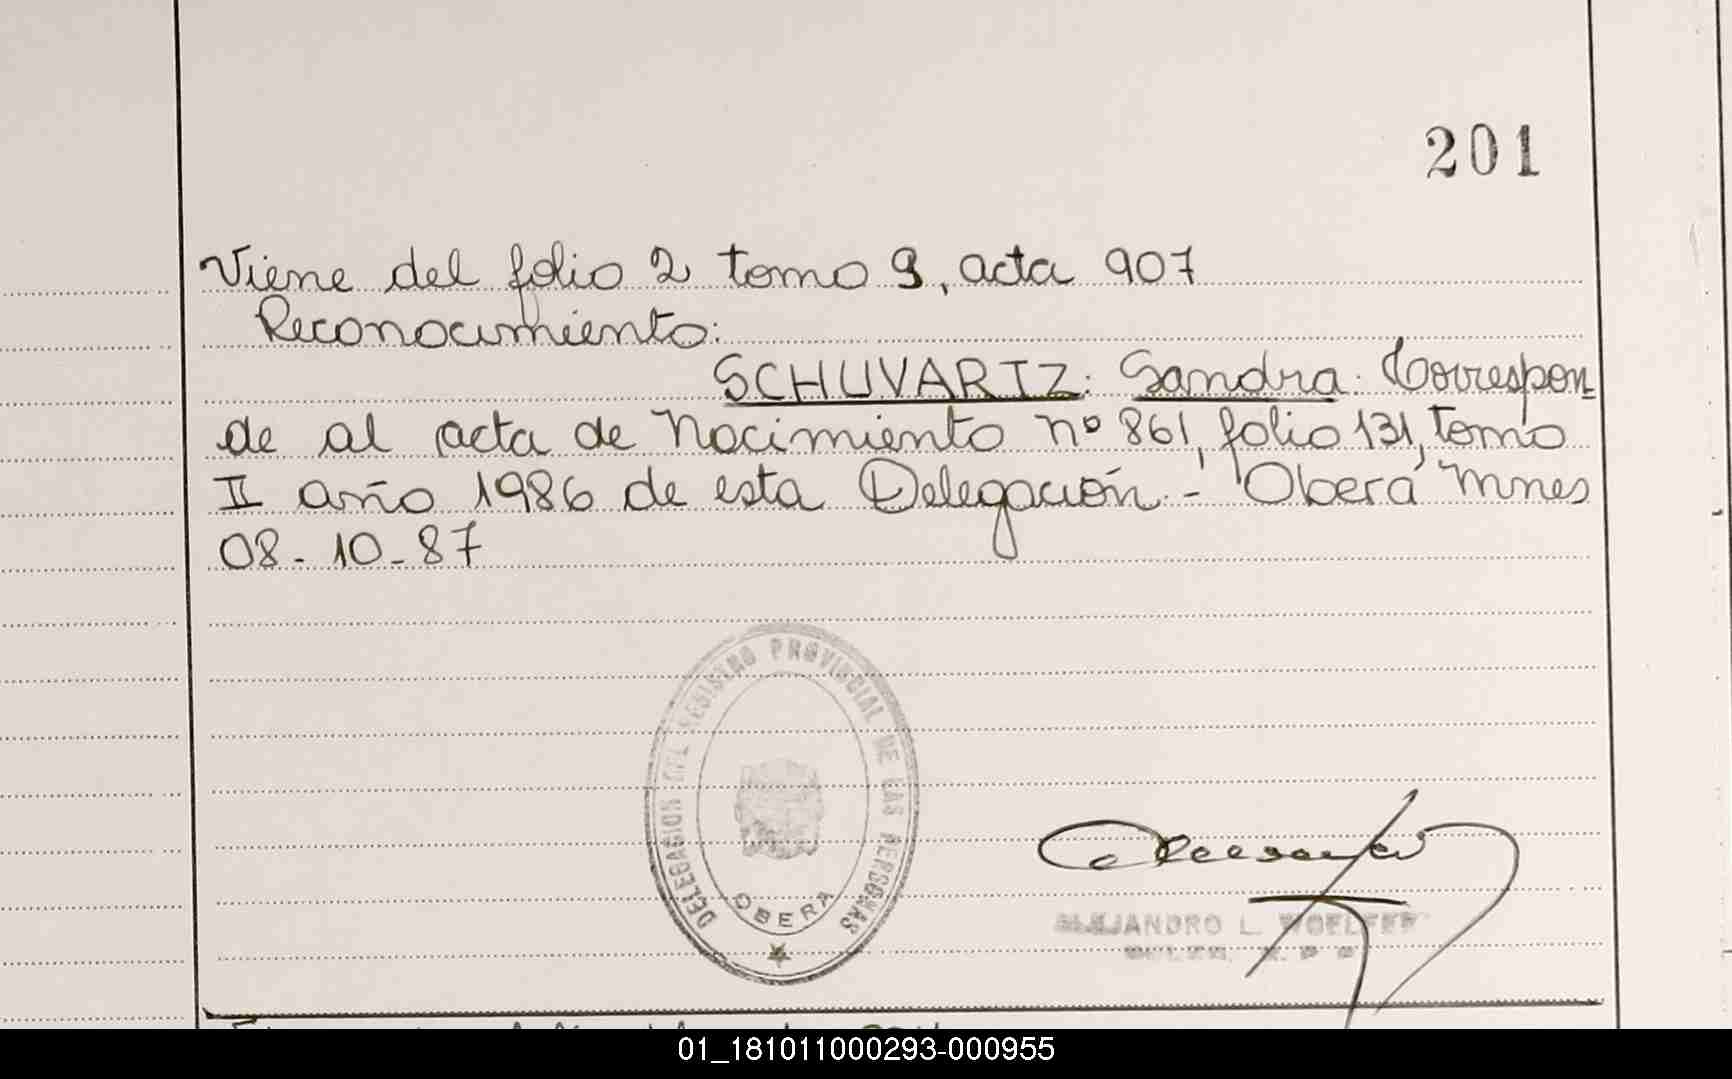 201
Viene del folio 2 tomo 9, acta 907
Reconocimiento:
SCHUVARTZ: Sandra. Correspon-
de al acta de Nacimiento nº 861, folio 131, tomo
II año 1986 de esta Delegación.- Oberá Mnes
08-10-87
DELEGACION DEL REGISTRO PROVINCIAL DE LAS PERSONAS
OBERA
ALEJANDRO L. WOELFER
01_181011000293-000955